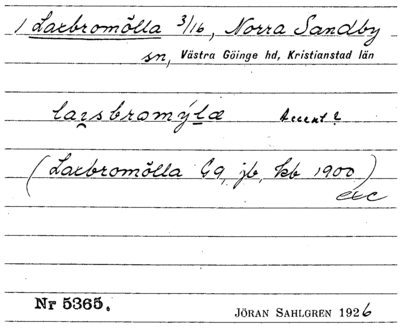 1 Laxbromölla 3/16, Norra Sandby
sn, Västra Göinge hd, Kristianstad län
laxsbromýlæ Accent?
(Laxbromölla G9, jb, kb 1900)
exc
Nr 5365. JÖRAN SAHLGREN 1926